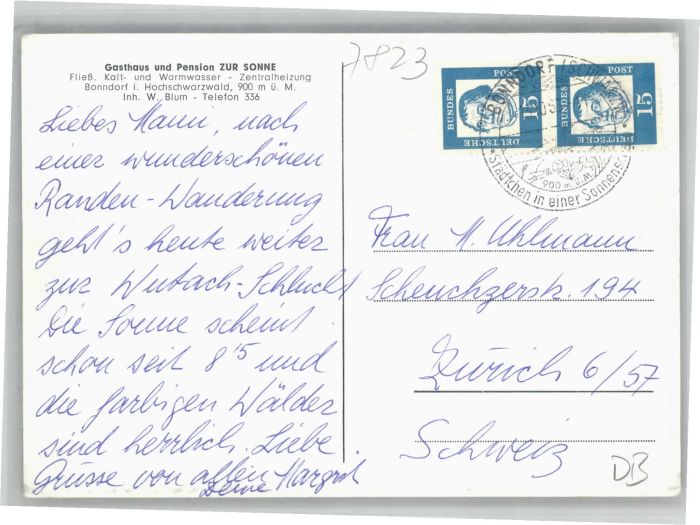 Gasthaus und Pension ZUR SONNE
Fließ. Kalt- und Warmwasser - Zentralheizung
Bonndorf i. Hochschwarzwald, 900 m ü. M.
Inh. W. Blum - Telefon 336
Liebes Manni, nach
einer wunderschönen
Randen-Wanderung
geht's heute weiter
zur Wutach-Schlucht
Die Sonne scheint
schon seit 8¹⁵ und
die farbigen Wälder
sind herrlich. Liebe
Grüsse von allen
Deine Margrit
7823
DEUTSCHE BUNDESPOST 15
DEUTSCHE BUNDESPOST 15
BONNDORF (SCHWARZW)
900 m ü.M.
Städtchen in einer
Frau M. Uhlmann
Scheuchzerstr. 194
Zürich 6/57
Schweiz
DB